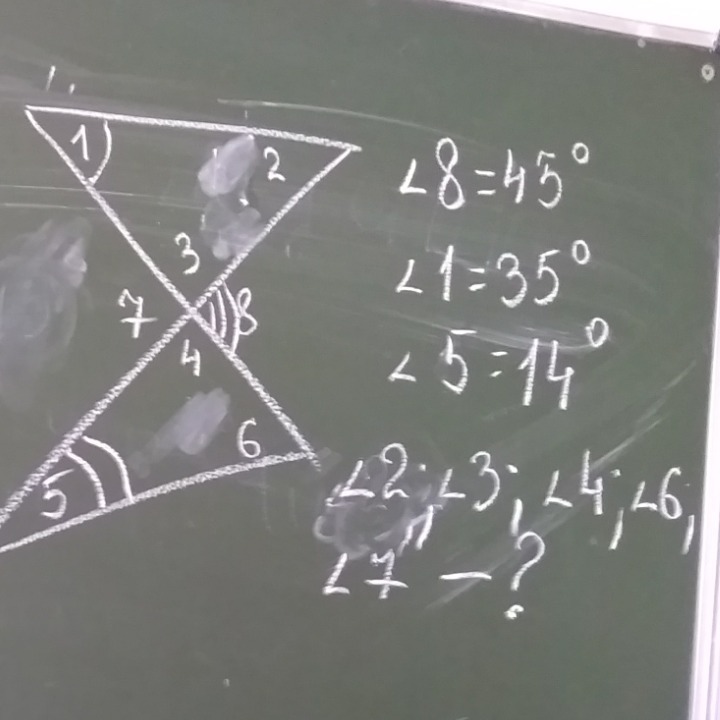 1
2
3
7
8
4
6
5
∠8=45°
∠1=35°
∠5=14°
∠2; ∠3; ∠4; ∠6;
∠7 – ?